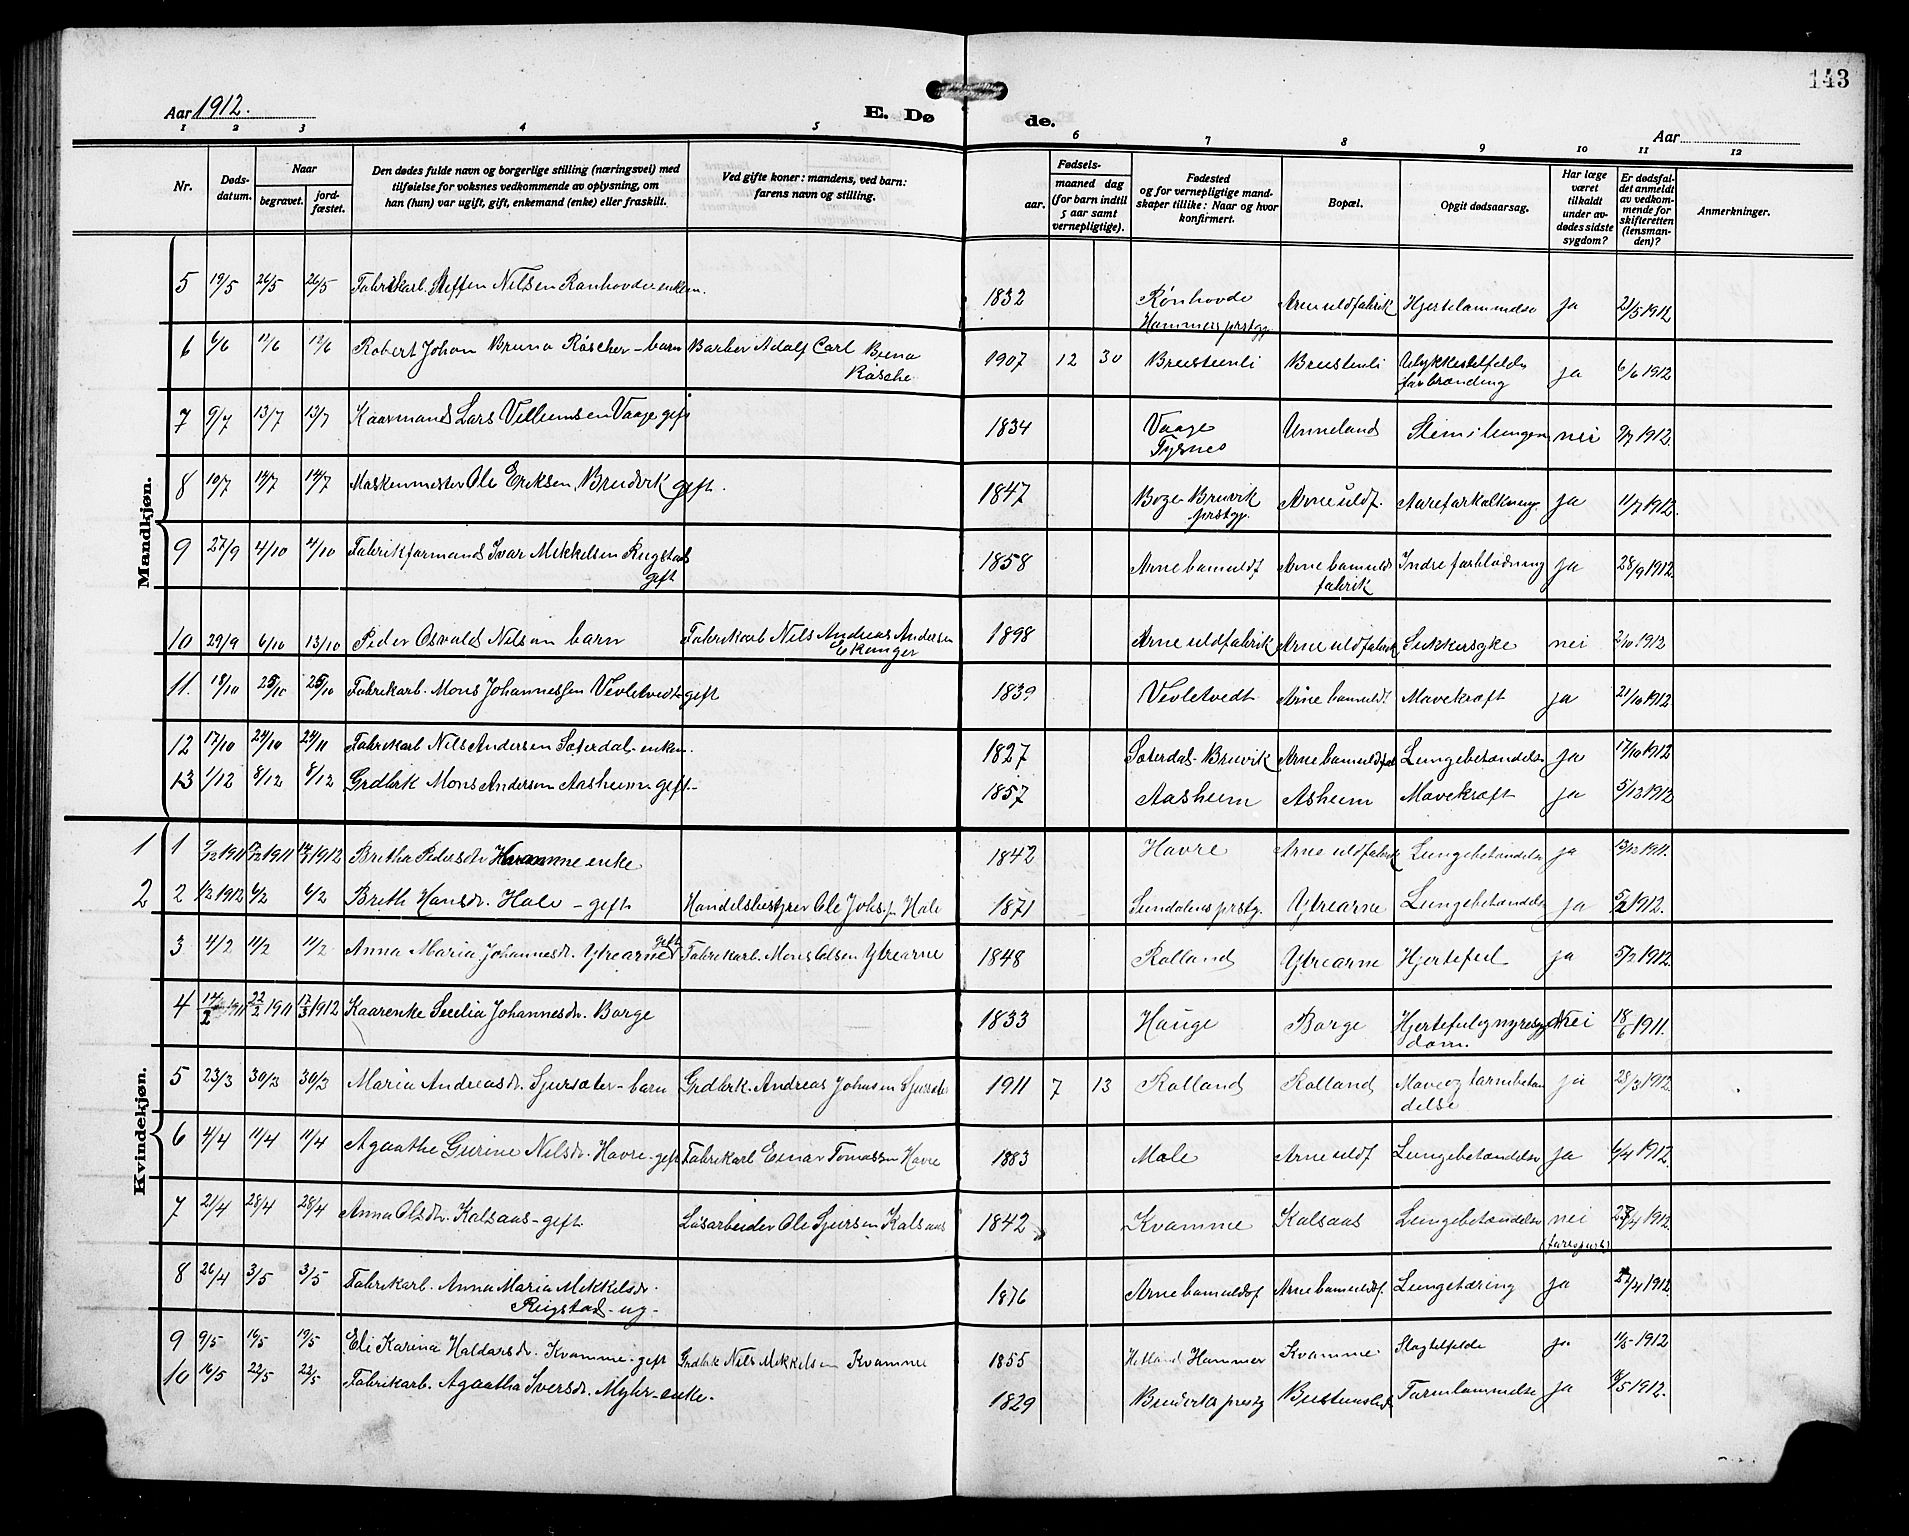 143
Aar 1912.
E. Døde.
Aar
1 2 3 4 5 6 7 8 9 10 11 12
Nr. Døds-datum. Naar begravet. jord-fæstet. Den dødes fulde navn og borgerlige stilling (næringsvei) med tilføielse for voksnes vedkommende av oplysning, om han (hun) var ugift, gift, enkemand (enke) eller fraskilt. Ved gifte koner: mandens, ved barn: farens navn og stilling. Fødsels- aar. maaned dag (for barn indtil 5 aar samt vernepligtige). Fødested og for vernepligtige mandskaper tillike: Naar og hvor konfirmert. Bopæl. Opgit dødsaarsag. Har læge været tilkaldt under avdødes sidste sygdom? Er dødsfaldet anmeldt av vedkommende for skifteretten (lensmanden)? Anmerkninger.
Mandkjøn.
5 19/5 26/5 26/5 Fabrikarb. Steffen Nilsen Ronhovde enkem. 1832 Rønhovde Arne uldfabrik Hjertelammelse ja 21/5 1912
Hammers prstgj.
6 6/6 12/6 12/6 Robert Johan Bruno Röscher - barn Barber Adolf Carl Bruno 1907 12 30 Breistenli Breistenli Ulykkestilfelde ja 6/6 1912
Røsche forbrænding
7 9/7 13/7 13/7 Kaarmand Lars Villumsen Vaage gift 1834 Vaage Unneland Slim i lungen nei 9/7 1912.
Tysnes
8 10/7 14/7 14/7 Maskinmester Ole Eriksen Bruvik gift. 1847 Boge Bruvik Arne uldf. Aareforkalkning. ja 11/7 1912.
prstgj.
9 27/9 4/10 4/10 Fabrikformand Ivar Mikkelsen Reigstad 1858 Arne bomuldf Arne bomulds Indre forblødning ja 28/9 1912.
gift fabrik
10 29/9 6/10 13/10 Peder Osvald Nilsen barn Fabrikarb Nils Andreas Andersen 1898 Arne uldfabrik Arne uldfabrik Sukkersyke nei 2/10 1912
Ekanger
11. 18/10 25/10 25/10 Fabrikarb. Mons Johannessen Vevletvedt gift 1839 Vevletvedt Arne bomuldf Mavekræft ja 21/10 1912
12 17/10 24/10 24/11 Fabrikarb Nils Andersen Sæterdal - enkem. 1827 Sæterdal - Bruvik Arne bomuldsfab Lungebetændelse ja 17/10 1912
13 1/12 8/12 8/12 Grdbrk Mons Andersen Aasheim gift - 1857 Aasheim Asheim Mavekræft ja 5/12 1912
Kvindekjøn.
1 1 7/12 1911 17/12 1911 14/3 1912 Britha Pedersdr Kvamme enke 1842 Havre Arne uldfabrik Lungebetændelse ja 13/12 1911.
2 2 1/2 1912 6/2 6/2 Brith Hansdr. Hole - gift Handelsbestyrer Ole Johs. Hole 1871 Sundalens prstgj. Ytrearne Lungebetændelse ja 5/2 1912.
3 4/2 11/2 11/2 Anna Maria Johannesdr. Ytrearne gift Fabrikarb. Mons Olsen Ytrearne 1848 Rolland Ytrearne Hjertefeil ja 5/2 1912.
4 14/2 1911 22/2 1911 17/3 1912 Kaarenke Secilia Johannesdr. Borge 1833 Hauge Borge Hjertefeil og nyresyg Nei 18/6 1911.
dom.
5 23/3 30/3 30/3 Maria Andreasdr. Sjursæter - barn Grdbrk. Andreas Johnsen Sjursæter 1911 7 13 Rolland Rolland Mave og tarmbetæn ja 28/3 1912.
delse
6 4/4 11/4 11/4 Agaathe Gurine Nilsdr. Havre - gift Fabrikarb Einar Tomassen Havre 1883 Mæle Arne uldf Lungebetændelse ja 6/4 1912.
7 21/4 28/4 28/4 Anna Olsdr. Kalsaas - gift Løsarbeider Ole Sjursen Kalsaas 1842 Kvamme Kalsaas Lungebetændelse nei 23/4 1912.
(forespurt)
8 26/4 3/5 3/5 Fabrikarb. Anna Maria Mikkelsdr. 1876 Arne bomuldsf Arne bomuldsf. Lungetæring ja 27/4 1912
Reigstad - ug -
9 9/5 19/5 19/5 Eli Karina Haldorsdr. Kvamme - gift Grdbrk Nils Mikkelsen Kvamme 1855 Hetland Hammer Kvamme Slagtilfelde ja 11/5 1912
10 16/5 22/5 22/5 Fabrikarb. Agaatha Iversdr. Myhr - enke. 1829 Bruviks prestg Breistenslid Tarmlammelse ja 18/5 1912.